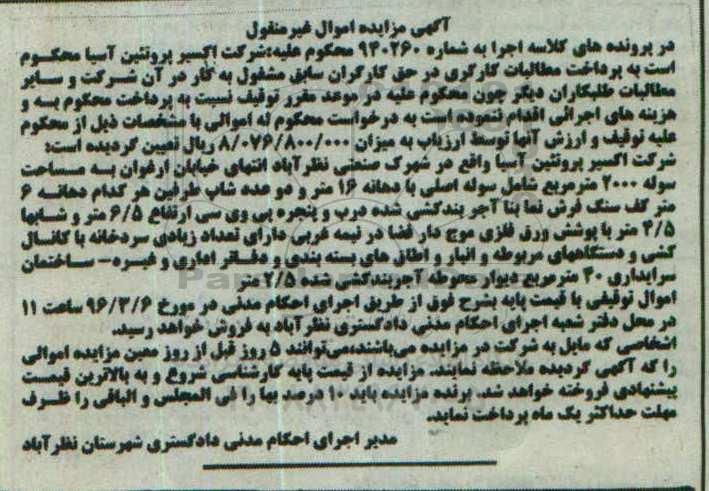 آگهی مزایده اموال غیرمنقول
در پرونده های کلاسه اجرا به شماره ۹۴۰۲۶۰ محکوم علیه:شرکت اکسیر پروتئین آسیا محکوم
است به پرداخت مطالبات کارگری در حق کارگران سابق مشغول به کار در آن شرکت و سایر
مطالبات طلبکاران دیگر چون محکوم علیه در موعد مقرر توقیف نسبت به پرداخت محکوم به و
هزینه های اجرائی اقدام ننموده است به درخواست محکوم له اموالی با مشخصات ذیل از محکوم
علیه توقیف و ارزش آنها توسط ارزیاب به میزان ۸/۰۷۶/۸۰۰/۰۰۰ ریال تعیین گردیده است:
شرکت اکسیر پروتئین آسیا واقع در شهرک صنعتی نظرآباد انتهای خیابان ارغوان به مساحت
سوله ۲۰۰۰ مترمربع شامل سوله اصلی با دهانه ۱۶ متر و دو عدد شاپ طرفین هر کدام دهانه ۶
متر کف سنگ فرش نما بنا آجر بندکشی شده درب و پنجره پی وی سی ارتفاع ۶/۵ متر و شاپها
۴/۵ متر با پوشش ورق فلزی موج دار فضا در نیمه غربی دارای تعداد زیادی سردخانه با کانال
کشی و دستگاههای مربوطه و انبار و اطاق های بسته بندی و دفاتر اداری و غیره- ساختمان
سرایداری ۴۰ مترمربع دیوار محوطه آجربندکشی شده ۲/۵ متر
اموال توقیفی با قیمت پایه بشرح فوق از طریق اجرای احکام مدنی در مورخ ۹۶/۳/۶ ساعت ۱۱
در محل دفتر شعبه اجرای احکام مدنی دادگستری نظرآباد به فروش خواهد رسید.
اشخاصی که مایل به شرکت در مزایده می‌باشند،می‌توانند ۵ روز قبل از روز معین مزایده اموالی
را که آگهی گردیده ملاحظه نمایند. مزایده از قیمت پایه کارشناسی شروع و به بالاترین قیمت
پیشنهادی فروخته خواهد شد. برنده مزایده باید ۱۰ درصد بها را فی المجلس و الباقی را ظرف
مهلت حداکثر یک ماه پرداخت نماید.
مدیر اجرای احکام مدنی دادگستری شهرستان نظرآباد